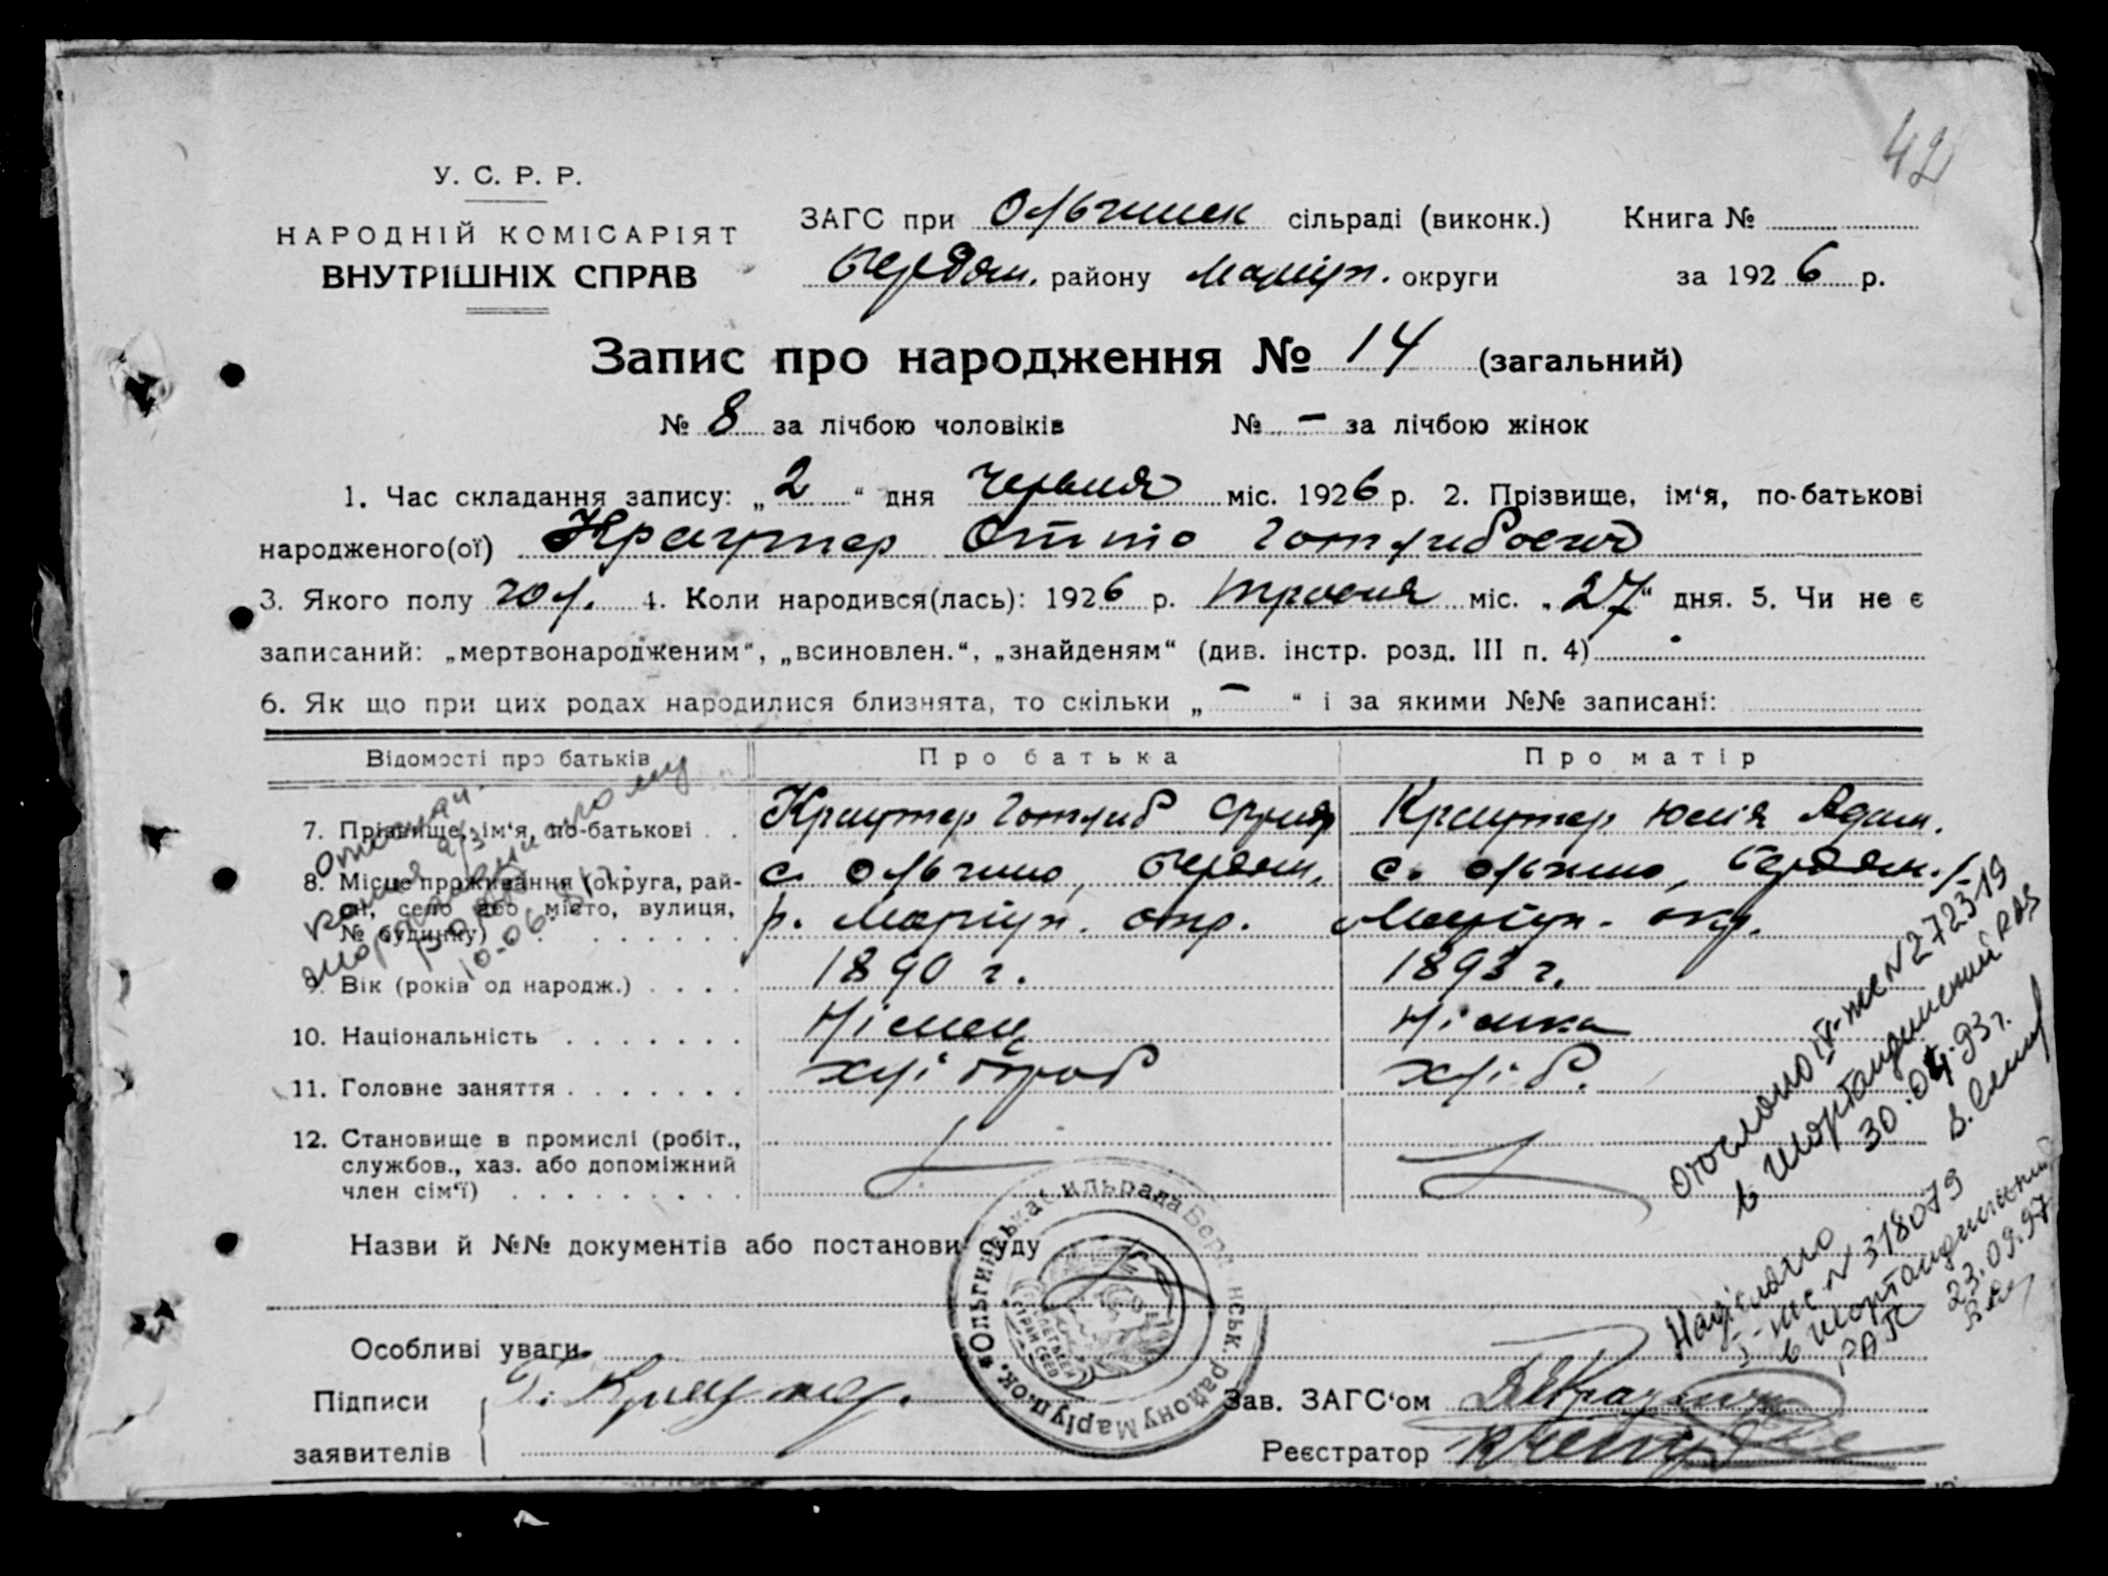 42
У. С. Р. Р.
НАРОДНІЙ КОМІСАРІЯТ
ВНУТРІШНІХ СПРАВ
ЗАГС при Ольгинск сільраді (виконк.) Книга №
Бердян. району Маріуп. округи за 1926 р.
Запис про народження № 14 (загальний)
№ 8 за лічбою чоловіків № – за лічбою жінок
1. Час складання запису: „2“ дня Червня міс. 1926 р. 2. Прізвище, ім‘я, по-батькові
народженого(ої) Краутер Отто Готлибович
3. Якого полу чол. 4. Коли народився(лась): 1926 р. травня міс. „27“ дня. 5. Чи не є
записаний: „мертвонародженим“, „всиновлен.“, „знайденям“ (див. інстр. розд. III п. 4)
6. Як що при цих родах народилися близнята, то скільки „–“ і за якими №№ записані:
Відомості про батьків Про батька Про матір
7. Прізвище, ім‘я, по-батькові . . Краутер Готлиб Краутер Юлія Адам.
8. Місце проживання (округа, рай- с. Ольгино, Бердян. с. Ольгино, Бердян. р.
он, село або місто, вулиця, р. Маріуп. окр. Маріуп. окр.
№ будинку) . . . . . . . .
9. Вік (років од народж.) . . . . 1890 г. 1893 г.
10. Національність . . . . . . . Німец Німка
11. Головне заняття . . . . . . . хлібороб хл.б.
12. Становище в промислі (робіт.,
службов., хаз. або допоміжний
член сім‘ї) . . . . . . . . .
10.06.81
Назви й №№ документів або постанови суду
Особливі уваги
Підписи Г. Краутер.
заявителів
Зав. ЗАГС‘ом
Реєстратор
Ольгинська сильрада Бердянськ. району Маріуп. ок.
отослано IV-же N 272319
в Шортандинский РАГС
30.04.93 г.
Надіслано
I-же N 318079
в Шортандинский
РАГС 23.09.97